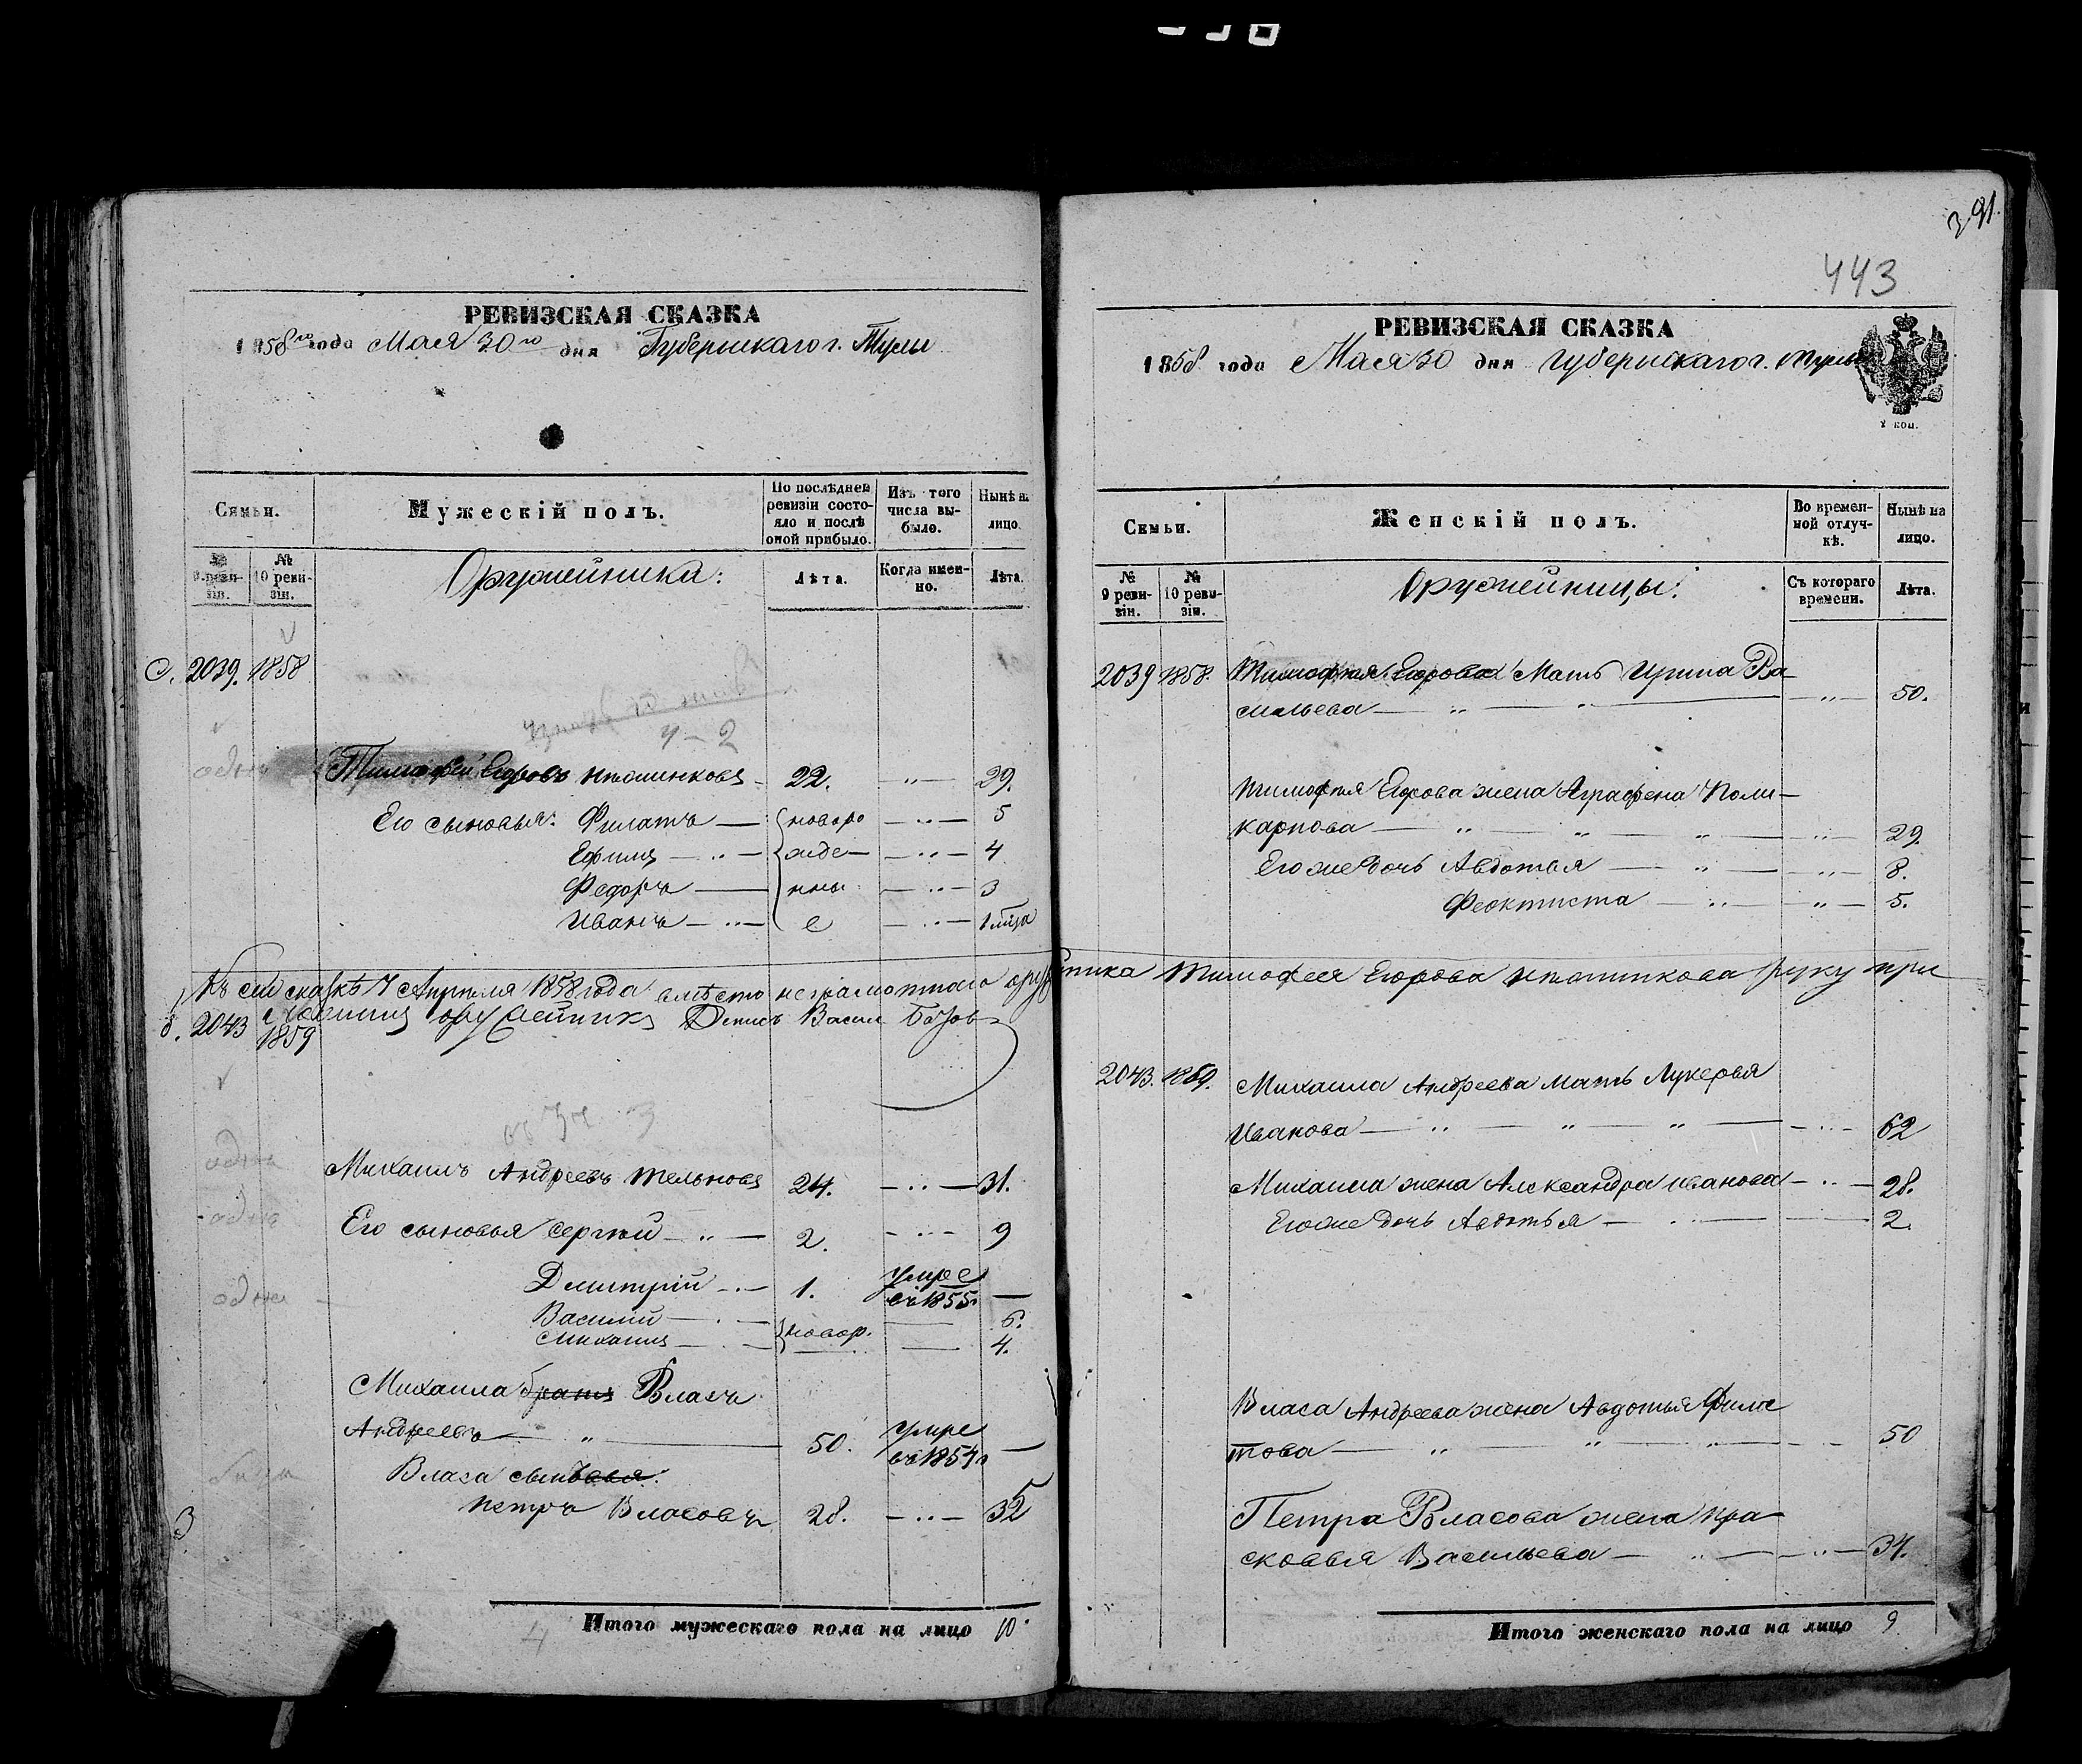 391.
443
РЕВИЗСКАЯ СКАЗКА
1858го года Мая 30го дня Губернскаго г. Тулы
Семьи.
Мужескій полъ.
По послѣдней ревизіи состояло и послѣ оной прибыло.
Изъ того числа выбыло.
Нынѣ на лицо.
№ 9 ревизіи.
№ 10 ревизіи.
Оружейники:
Лѣта.
Когда именно.
Лѣта.
2039. 1858
Тимофей Егоровъ 22. 29.
Его сыновья: Филатъ новоро 5
Ефимъ жде 4
Федоръ нны 3
Иванъ е 1
Къ сей сказкѣ 7 Апрѣля 1858 года вместо неграмотнаго оружейника Тимофея Егорова руку при
оружейникъ Денисъ Васил
2043 1859
Михаилъ Андреевъ Тельновъ 24. 31.
Его сыновья Сергѣй 2. 9
Дмитрій 1. умре въ 1855
Василій новор. 6.
Михаилъ 4.
Михаила братъ Власъ
Андреевъ 50. умре въ 1854
Власа сыновья:
Петръ Власовъ 28. 35
Итого мужескаго пола на лицо 10.
РЕВИЗСКАЯ СКАЗКА
1858 года Мая 30 дня Губернскаго г. Тулы
Семьи.
Женскій полъ.
Во временной отлучкѣ.
Нынѣ на лицо.
№ 9 ревизіи.
№ 10 ревизіи.
Оружейницы:
Съ котораго времени.
Лѣта.
2039 1858. Тимофея Егорова Мать Ирина Ва-
сильева 50.
Тимофея Егорова жена Аграфена Поли-
карпова 29.
Его же дочь Авдотья 8.
Феоктиста 5.
2043. 1859. Михаила Андреева мать Лукерья
Иванова 62
Михаила жена Александра Иванова 28.
Его же дочь Авдотья 2.
Власа Андреева жена Авдотья Фила
това 50
Петра Власова жена Пра-
сковья Васильева 34.
Итого женскаго пола на лицо 9